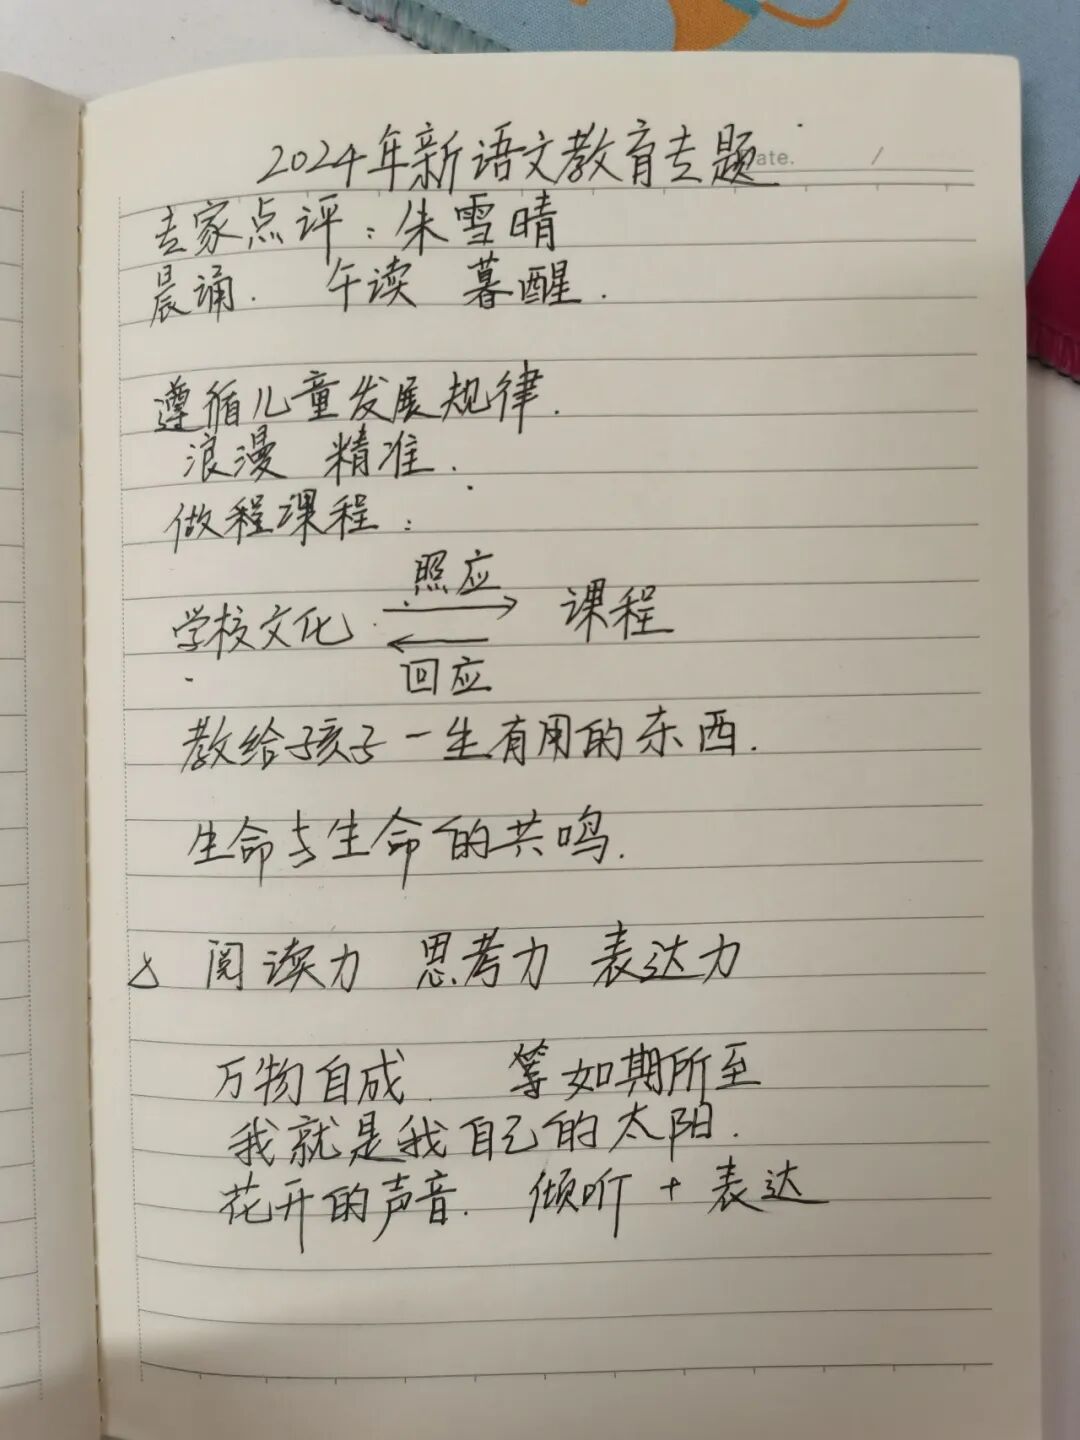 2024年新语文教育专题
ate. /
专家点评：朱雪晴
晨诵. 午读 暮醒.
遵循儿童发展规律.
浪漫 精准.
做程课程：
照应
学校文化 → 课程
←
回应
教给孩子一生有用的东西.
生命与生命的共鸣.
△ 阅读力 思考力 表达力
万物自成. 等如期所至
我就是我自己的太阳.
花开的声音. 倾听 + 表达